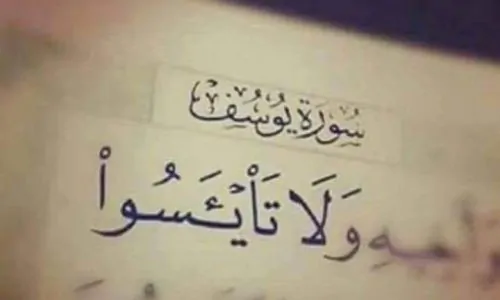 سُورَةُ يُوسُفَ
وَلَا تَا۟يْـَٔسُوا۟